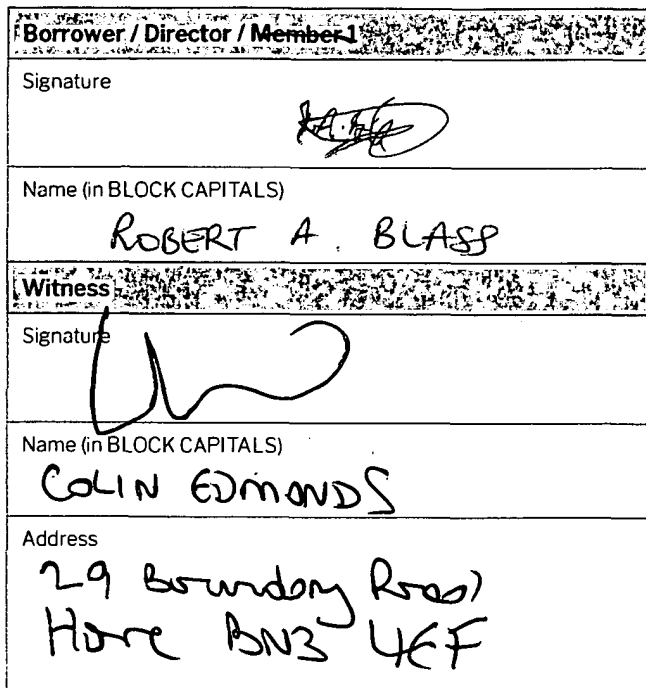 Borrower / Director / Member 1
Signature
Name (in BLOCK CAPITALS)
ROBERT A. BLASS
Witness
Signature
Name (in BLOCK CAPITALS)
COLIN EDMONDS
Address
29 Boundary Road
Hove BN3 4EF